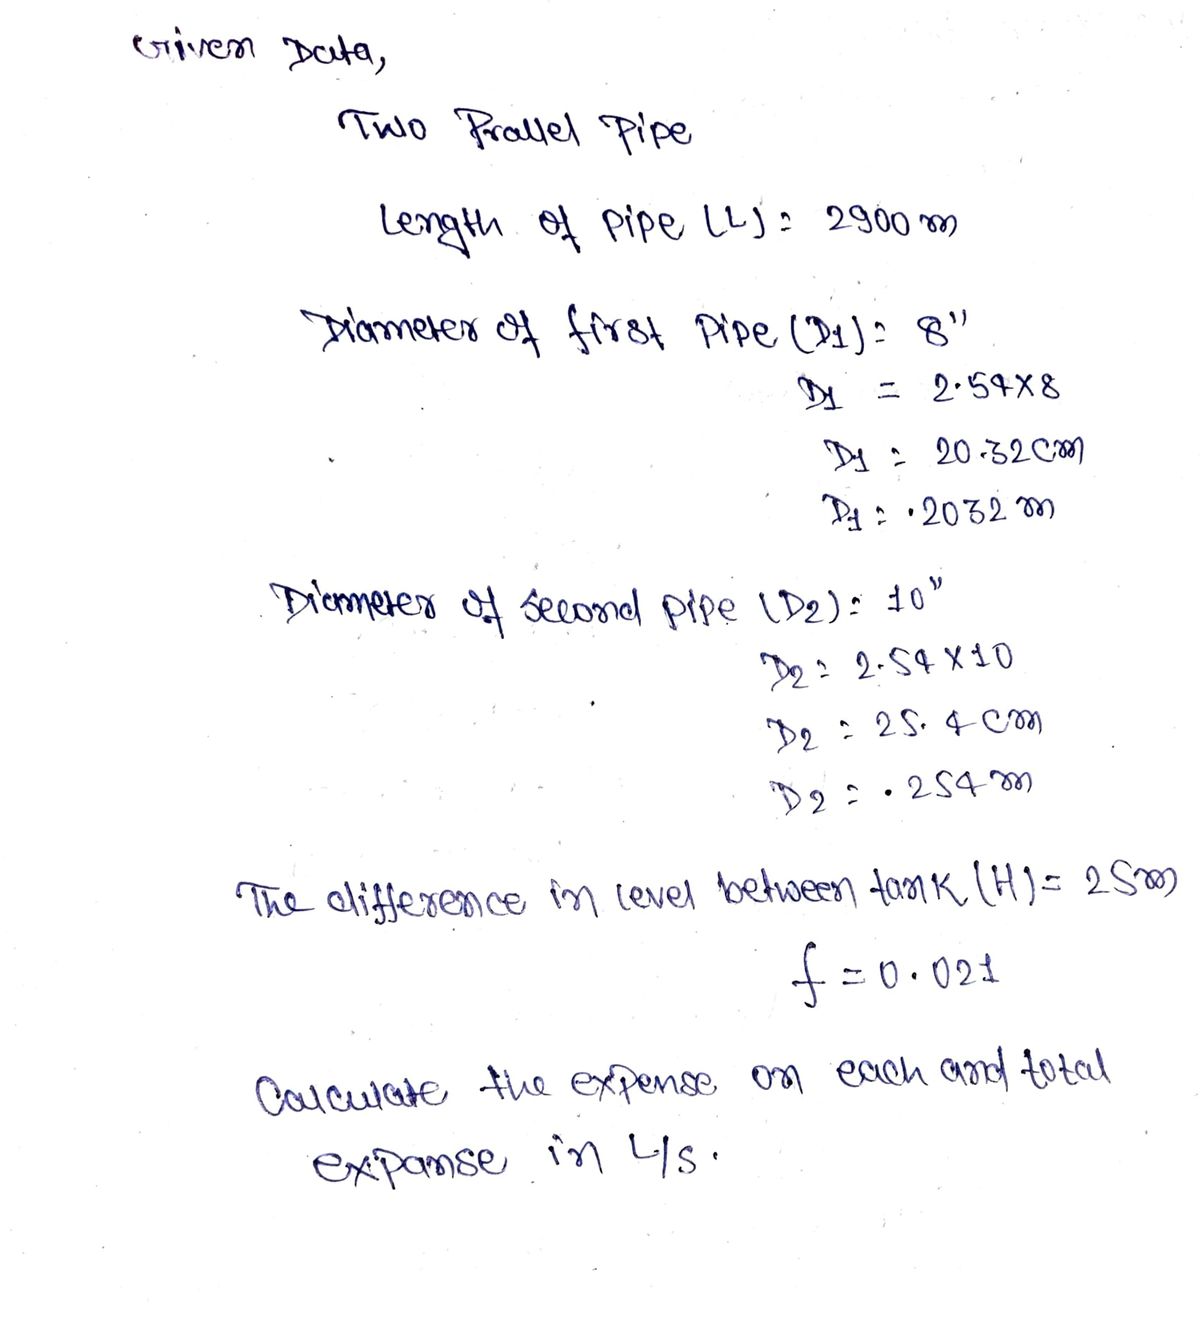 Given Data,
Two Prallel Pipe
Length of pipe (L) = 2900 m
Diameter of first pipe (D1) = 8"
D1 = 2.54X8
D1 = 20.32 cm
D1 = .2032 m
Diameter of second pipe (D2) = 10"
D2 = 2.54 X 10
D2 = 25.4 cm
D2 = .254 m
The difference in level between tank (H) = 25m
f = 0.021
Calculate the expense on each and total
expanse in L/s.